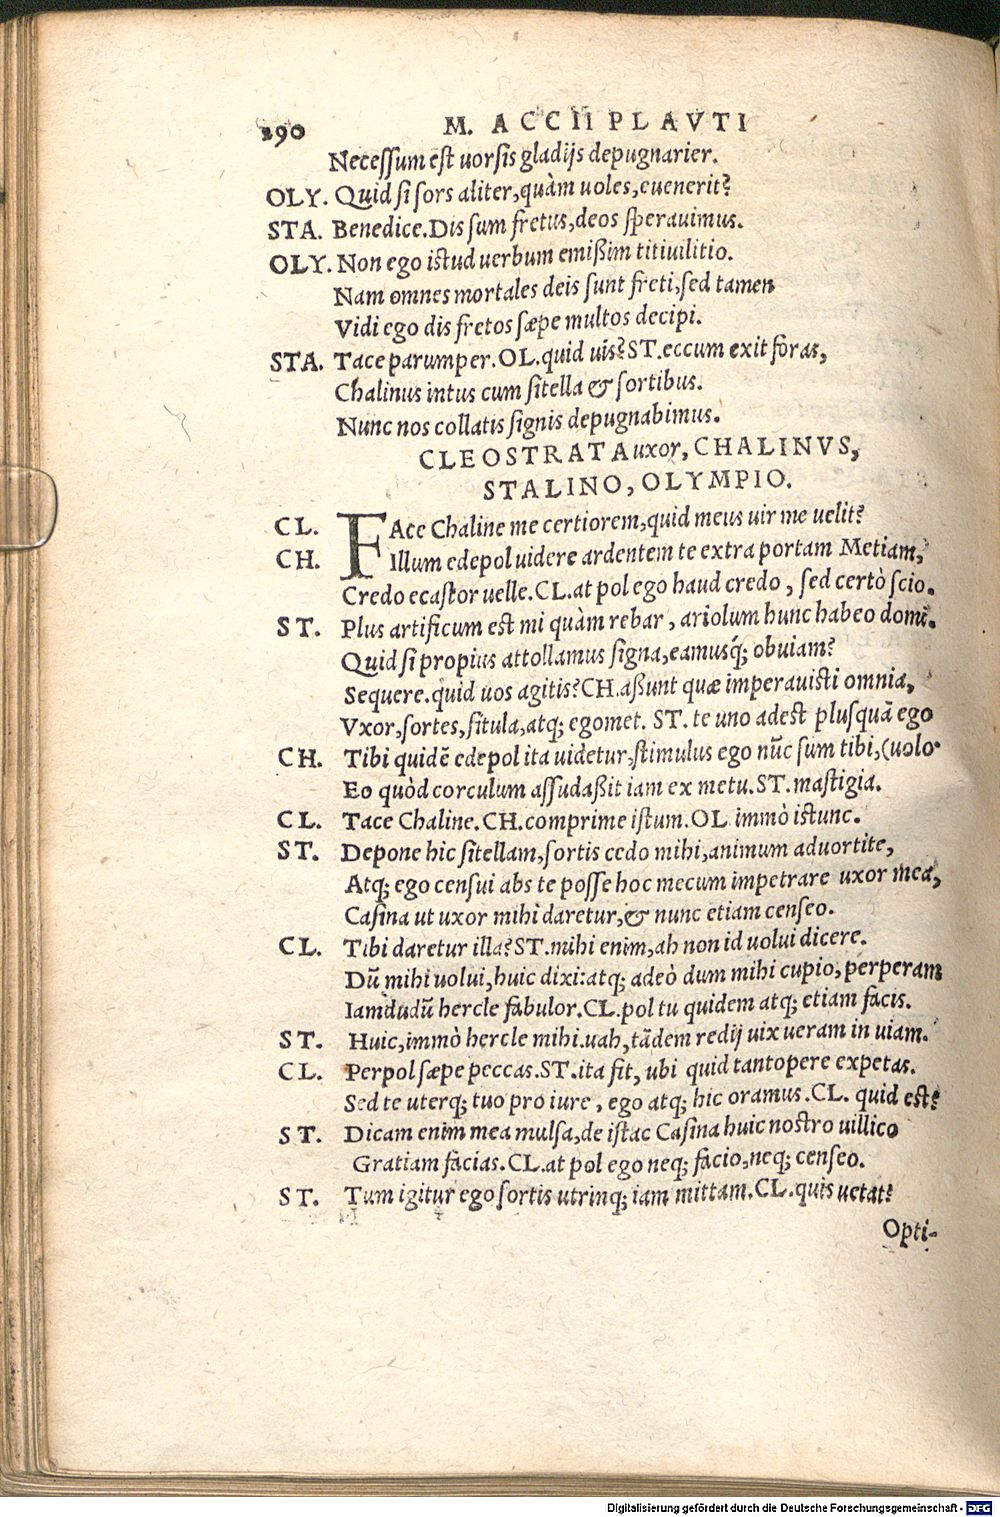 290 M. ACCII PLAVTI
Necessum est uorsis gladijs depugnarier.
OLY. Quid si sors aliter, quàm uoles, euenerit?
STA. Benedice. Dis sum fretus, deos sperauimus.
OLY. Non ego istud uerbum emißim titiuilitio.
Nam omnes mortales deis sunt freti, sed tamen
Vidi ego dis fretos sæpe multos decipi.
STA. Tace parumper. OL. quid uis? ST. eccum exit foras,
Chalinus intus cum sitella & sortibus.
Nunc nos collatis signis depugnabimus.
CLEOSTRATA uxor, CHALINVS,
STALINO, OLYMPIO.
CL. FAce Chaline me certiorem, quid meus uir me uelit?
CH. Illum edepol uidere ardentem te extra portam Metiam,
Credo ecastor uelle. CL. at pol ego haud credo, sed certò scio.
ST. Plus artificum est mi quàm rebar, ariolum hunc habeo domi.
Quid si propius attollamus signa, eamusq́; obuiam?
Sequere. quid uos agitis? CH. aßunt quæ imperauisti omnia,
Vxor, sortes, situla, atq; egomet. ST. te uno adest plusquã ego
CH. Tibi quidẽ edepol ita uidetur, stimulus ego nũc sum tibi, (uolo.
Eo quòd corculum assudaßit iam ex metu. ST. mastigia.
CL. Tace Chaline. CH. comprime istum. OL immò istunc.
ST. Depone hic sitellam, sortis cedo mihi, animum aduortite,
Atq; ego censui abs te posse hoc mecum impetrare uxor mea,
Casina ut uxor mihi daretur, & nunc etiam censeo.
CL. Tibi daretur illa? ST. mihi enim, ah non id uolui dicere.
Dũ mihi uolui, huic dixi: atq; adeò dum mihi cupio, perperam
Iamdudũ hercle fabulor. CL. pol tu quidem atq; etiam facis.
ST. Huic, immò hercle mihi. uah, tãdem redij uix ueram in uiam.
CL. Perpol sæpe peccas. ST. ita fit, ubi quid tantopere expetas.
Sed te uterq; tuo pro iure, ego atq; hic oramus. CL. quid est?
ST. Dicam enim mea mulsa, de istac Casina huic nostro uillico
Gratiam facias. CL. at pol ego neq; facio, neq; censeo.
ST. Tum igitur ego sortis utrinq; iam mittam. CL. quis uetat?
Opti-
Digitalisierung gefördert durch die Deutsche Forschungsgemeinschaft - DFG